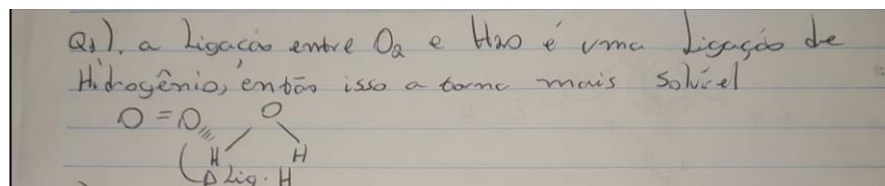 Q1). a Ligação entre O2 e H2O é uma Ligação de
Hidrogênio, então isso a torna mais solúvel
O = O O
H H
Lig. H